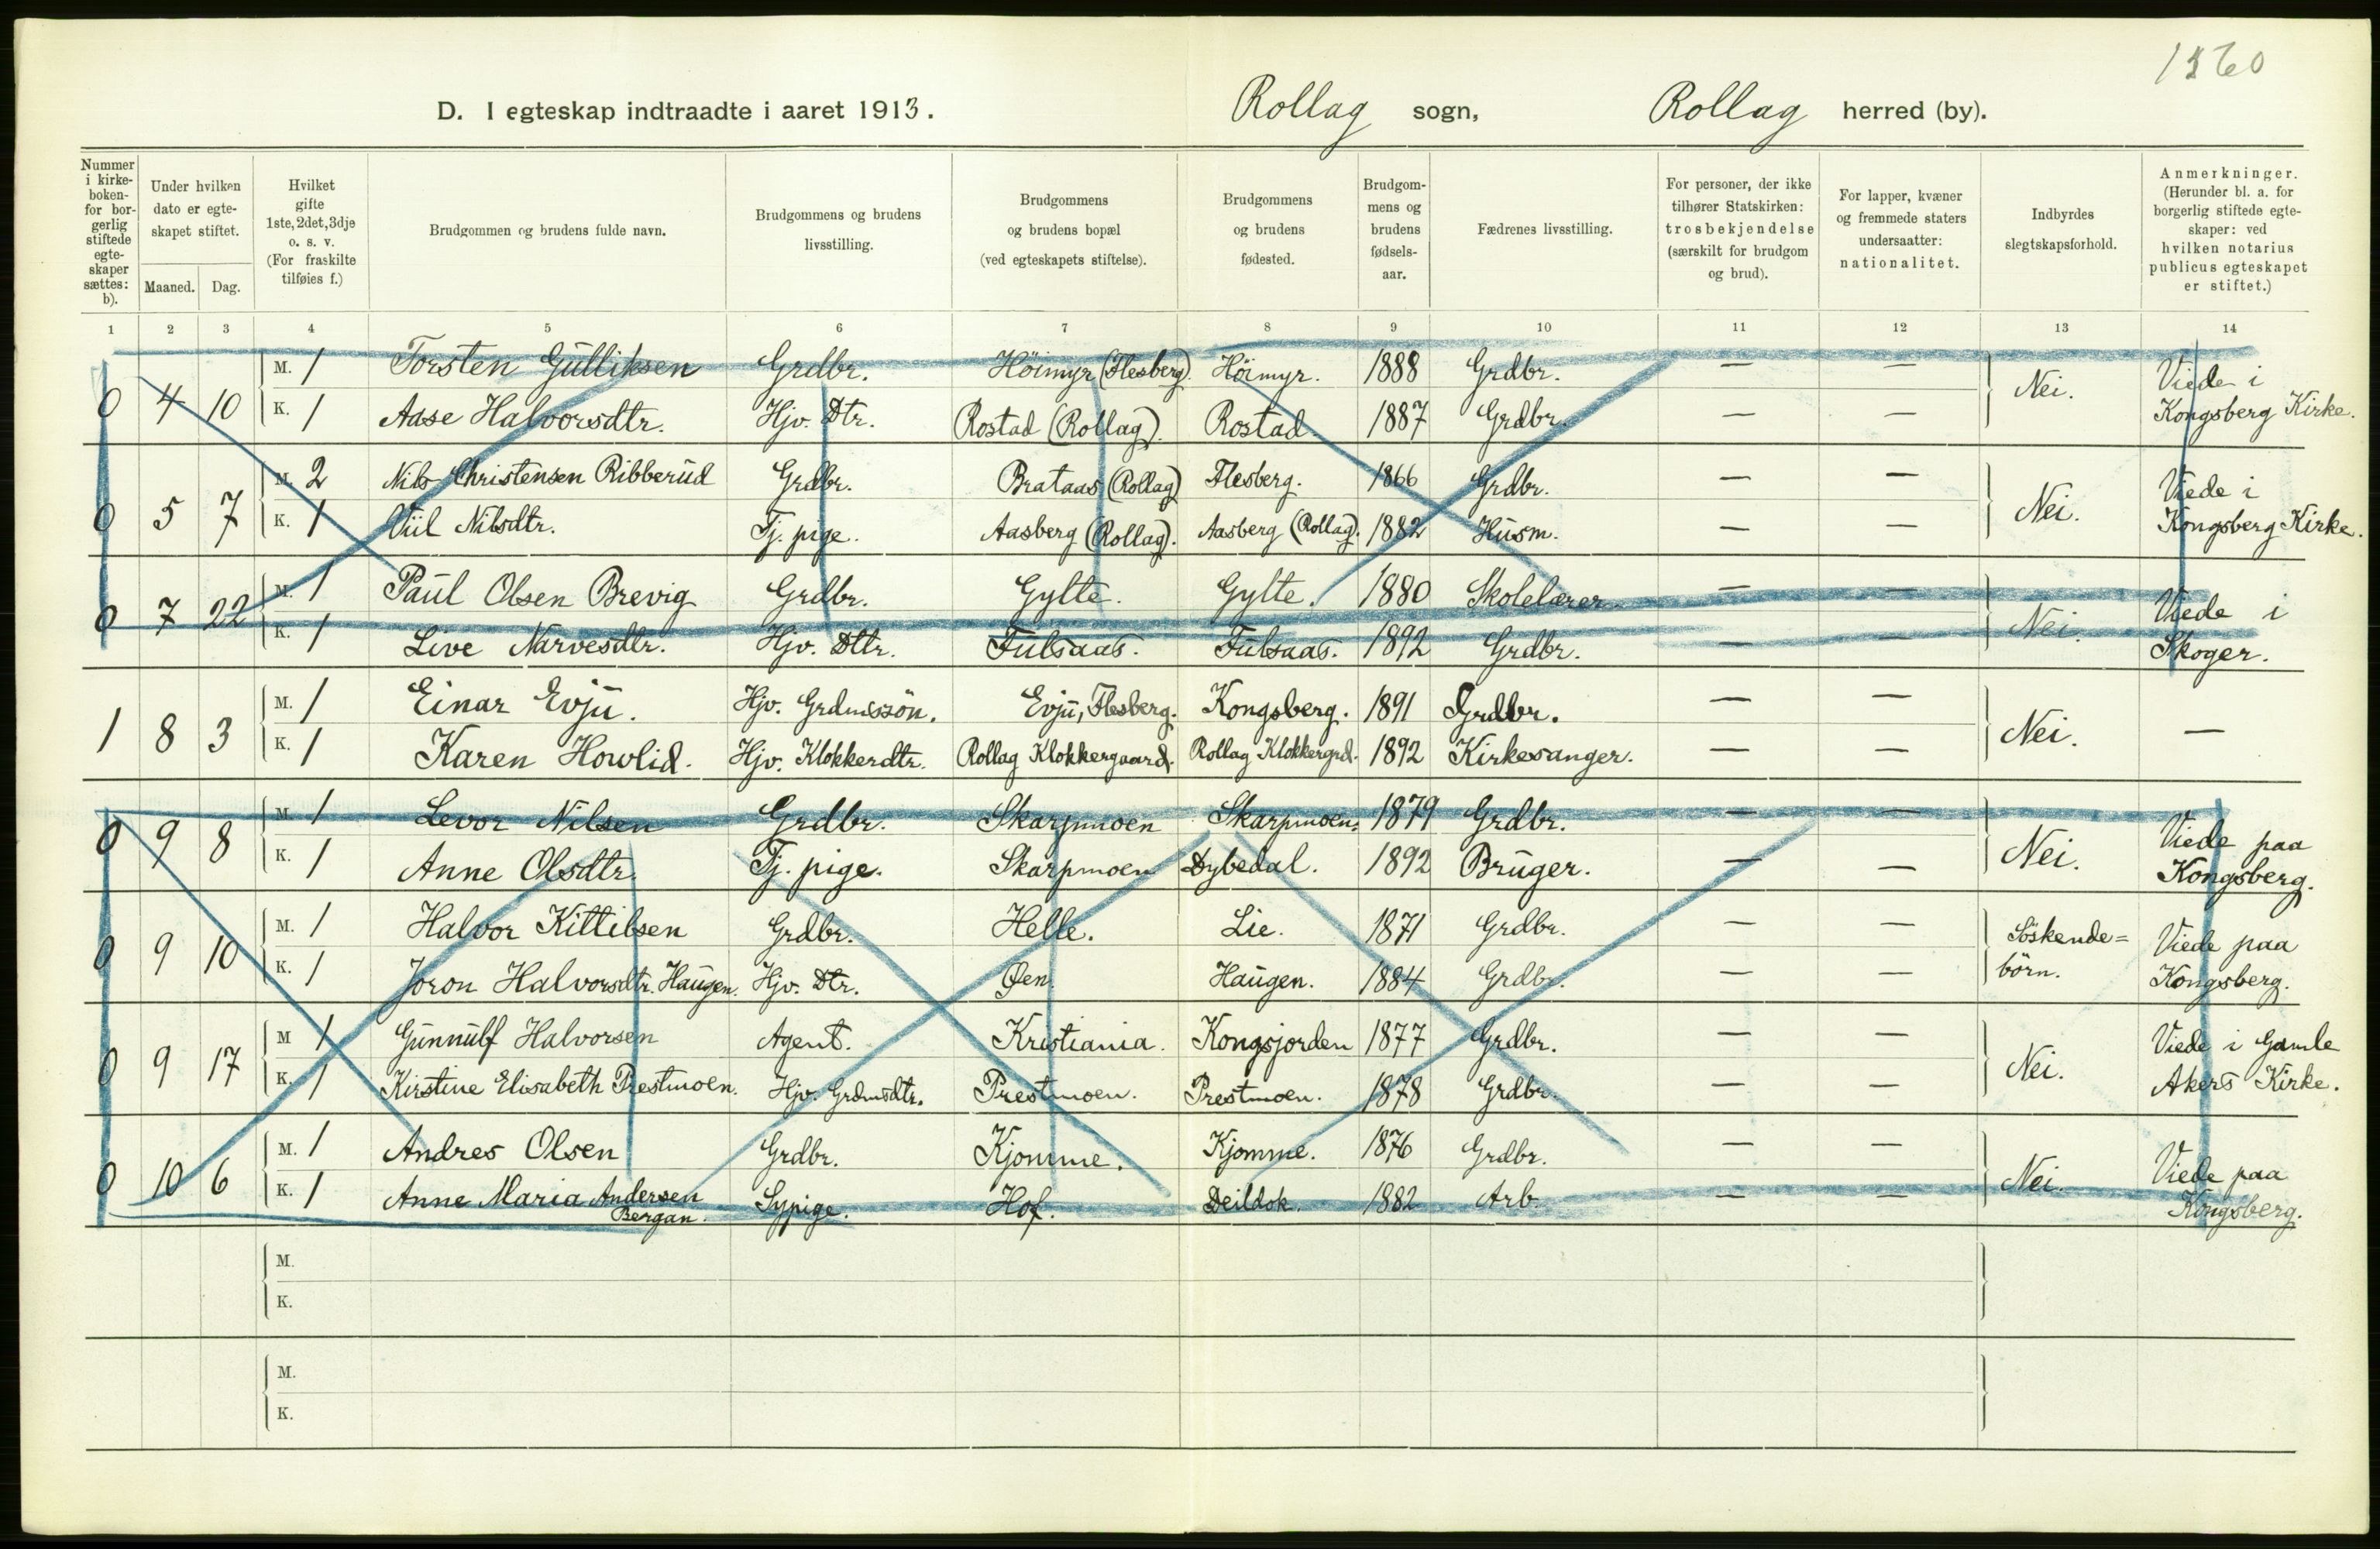 1360
D. I egteskap indtraadte i aaret 1913. Rollag sogn, Rollag herred (by).
Nummer i kirke-boken- for bor-gerlig stiftede egte-skaper sættes: b).
Under hvilken dato er egte-skapet stiftet.
Maaned. Dag.
Hvilket gifte 1ste, 2det, 3dje o. s. v. (For fraskilte tilføies f.)
Brudgommen og brudens fulde navn.
Brudgommens og brudens livsstilling.
Brudgommens og brudens bopæl (ved egteskapets stiftelse).
Brudgommens og brudens fødested.
Brudgom-mens og brudens fødsels-aar.
Fædrenes livsstilling.
For personer, der ikke tilhører Statskirken: trosbekjendelse (særskilt for brudgom og brud).
For lapper, kvæner og fremmede staters undersaatter: nationalitet.
Indbyrdes slegtskapsforhold.
Anmerkninger. (Herunder bl. a. for borgerlig stiftede egte-skaper: ved hvilken notarius publicus egteskapet er stiftet.)
1 2 3 4 5 6 7 8 9 10 11 12 13 14
0 4 10 M. 1 Torsten Gulliksen Grdbr. Höimyr (Flesberg). Höimyr. 1888 Grdbr. — — Nei. Viede i
K. 1 Aase Halvorsdtr. Hjv. Dtr. Rostad (Rollag). Rostad. 1887 Grdbr. — — Kongsberg Kirke.
0 5 7 M. 2 Nils Christensen Ribberud Grdbr. Brataas (Rollag) Flesberg. 1866 Grdbr. — — Nei. Viede i
K. 1 Viil Nilsdtr. Tj. pige. Aasberg (Rollag). Aasberg (Rollag). 1882 Husm. — — Kongsberg Kirke.
0 7 22 M. 1 Paul Olsen Brevig Grdbr. Gylte. Gylte. 1880 Skolelærer — — Nei. Viede i
K. 1 Live Narvesdtr. Hjv. Dttr. Fulsaas. Fulsaas. 1892 Grdbr. — — Skoger.
1 8 3 M. 1 Einar Evju. Hjv. Grdmssön. Evju, Flesberg. Kongsberg. 1891 Grdbr. — — Nei. —
K. 1 Karen Howlid. Hjv. Klokkerdtr. Rollag Klokkergaard. Rollag Klokkergrd. 1892 Kirkesanger. — —
0 9 8 M. 1 Levor Nilsen Grdbr. Skarpmoen Skarpmoen. 1879 Grdbr. — — Nei. Viede paa
K. 1 Anne Olsdtr. Tj. pige. Skarpmoen Dybedal. 1892 Bruger. — — Kongsberg.
0 9 10 M. 1 Halvor Kittilsen Grdbr. Helle. Lie. 1871 Grdbr. — — Söskende= Viede paa
K. 1 Joron Halvorsdtr. Haugen. Hjv. Dtr. Øen. Haugen. 1884 Grdbr. — — börn. Kongsberg.
0 9 17 M 1 Gunnulf Halvorsen Agent. Kristiania. Kongsjorden 1877 Grdbr. — — Nei. Viede i Gamle
K. 1 Kirstine Elisabeth Prestmoen. Hjv. Grdmsdtr. Prestmoen. Prestmoen. 1878 Grdbr. — — Akers Kirke.
0 10 6 M. 1 Andres Olsen Grdbr. Kjomme. Kjomme. 1876 Grdbr. — — Nei. Viede paa
K. 1 Anne Maria Andersen Sypige. Hof. Deildok. 1882 Arb. — — Kongsberg.
Bergan.
M.
K.
M.
K.